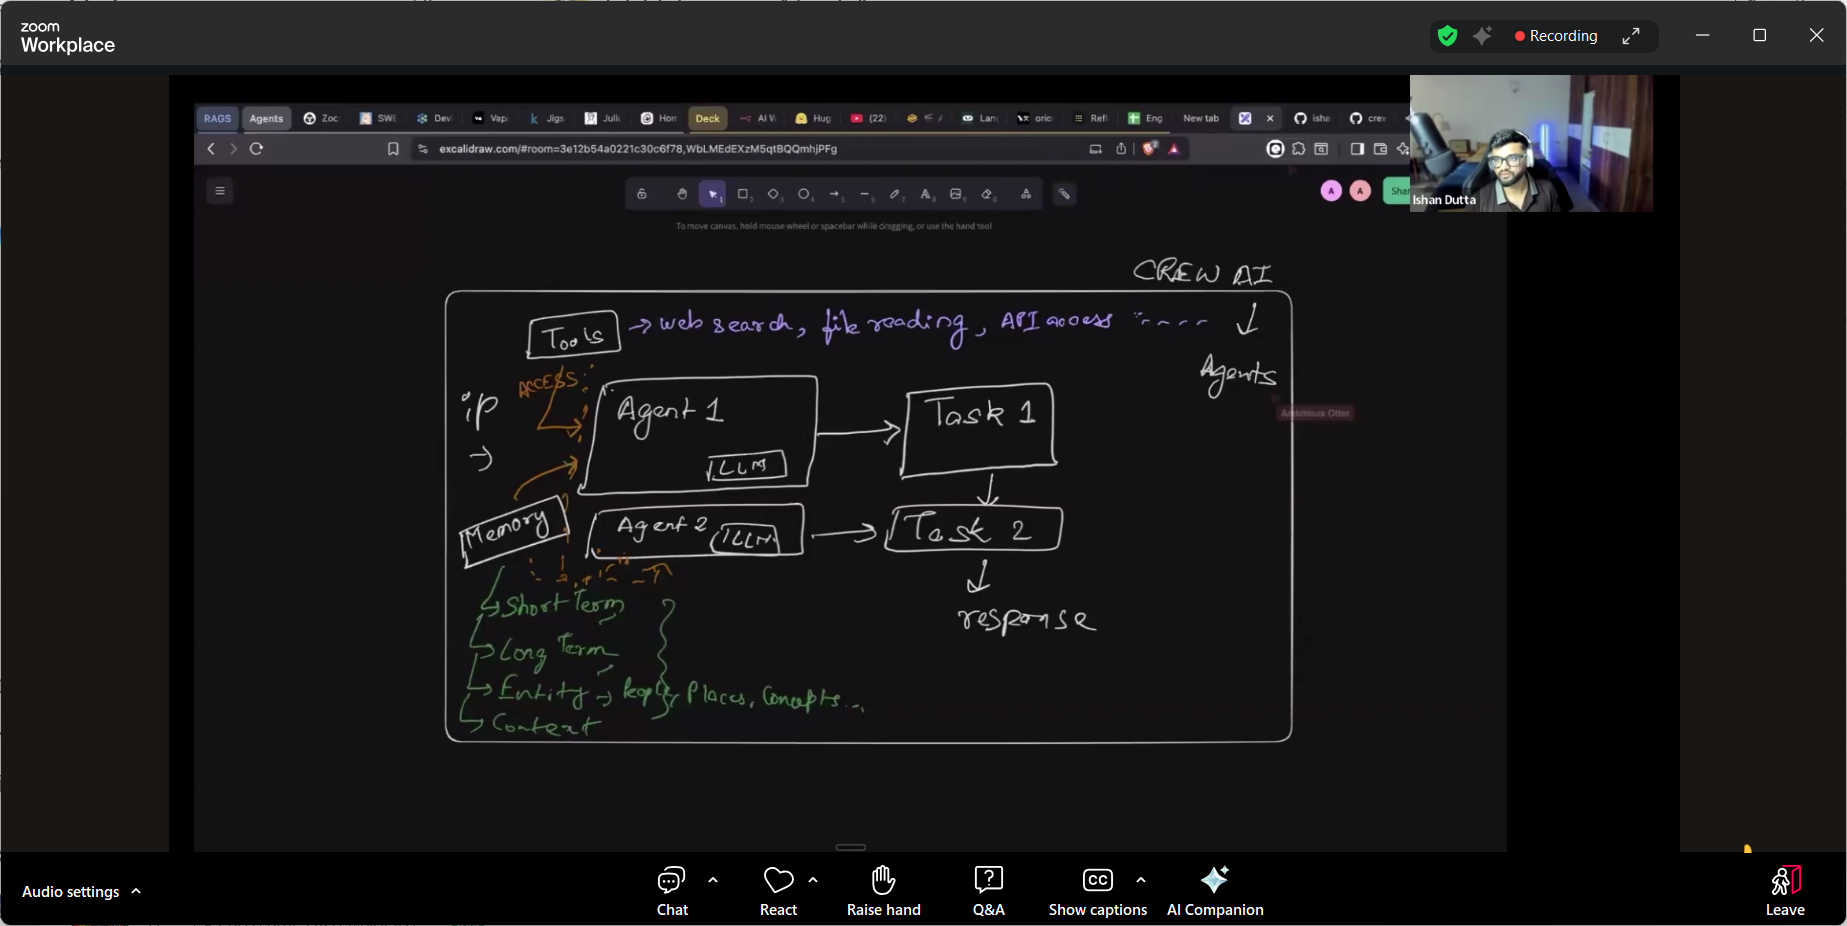 zoom
Workplace
Recording
RAGS Agents Zoc SWE Dev Vap Jigs Juli Hon Deck AI W Hug (22) Lan oric Refl Eng New tab isha crev
excalidraw.com/#room=3e12b54a0221c30c6f78,WbLMEdEXzM5qtBQQmhjPFg
A A Shar
Ishan Dutta
To move canvas, hold mouse wheel or spacebar while dragging, or use the hand tool
CREW AI
Tools → web search, file reading, API access
Agents
ACCESS
Ambitious Otter
ip
→
Agent 1
LLM
Task 1
Memory
Agent 2
LLM
Task 2
Short Term
response
Long Term
Entity → People, Places, Concepts...
Context
Audio settings
Chat
React
Raise hand
Q&A
CC
Show captions
AI Companion
Leave